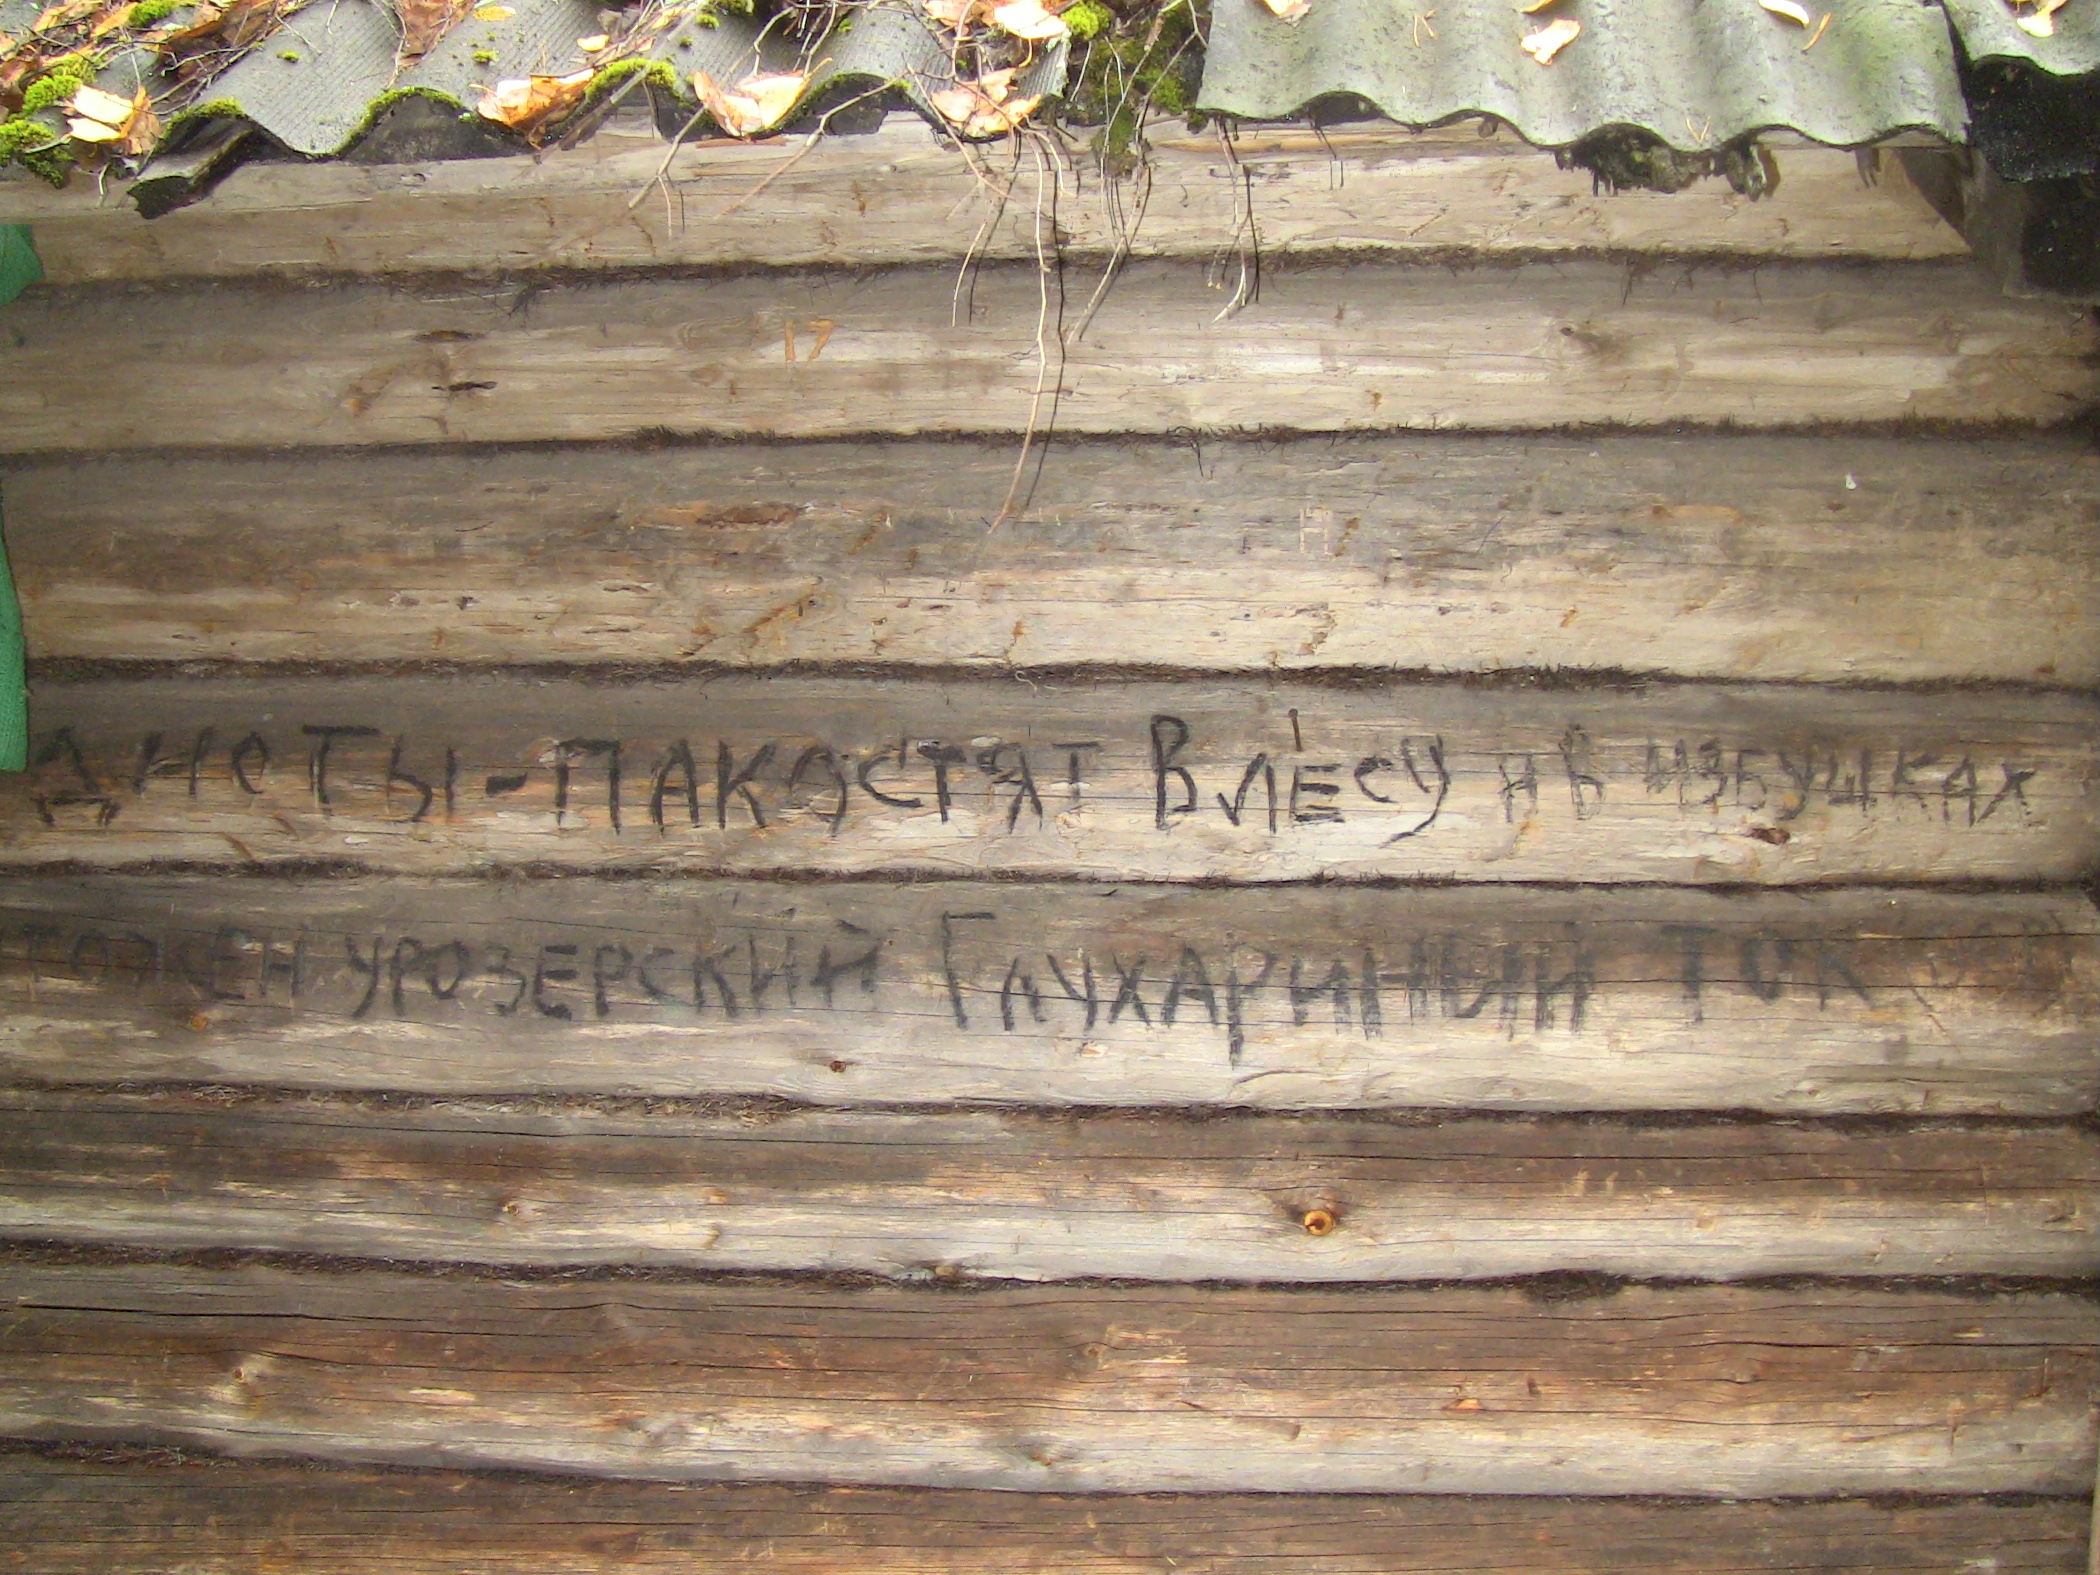 17
Н
ДИОТЫ-ПАКОСТЯТ В ЛЕСУ И В ИЗБУШКАХ
ТОЖЕН УРОЗЕРСКИЙ ГЛУХАРИНЫЙ ТОК